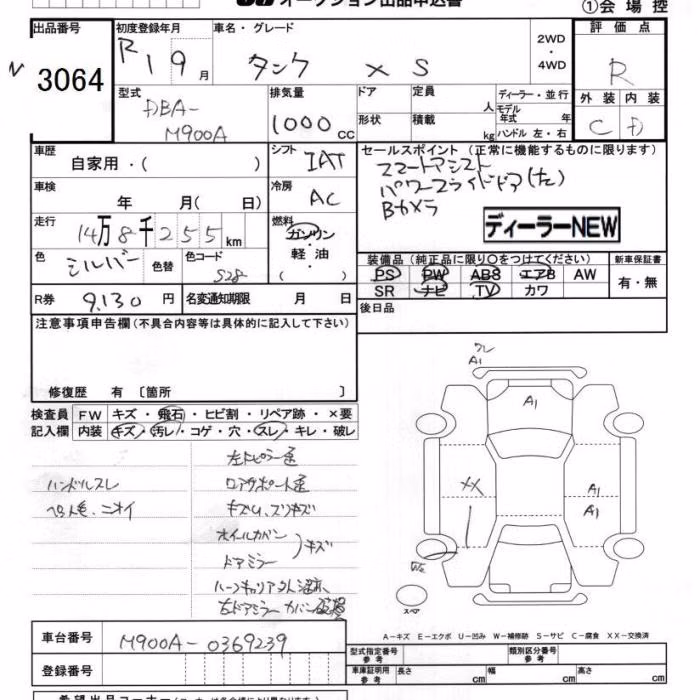 オークション出品申込書
①会場控
出品番号 初度登録年月 車名・グレード 評価点
3064 R 1 9月 タンク XS 2WD・4WD R
型式 排気量 ドア 定員 人 ディーラー・並行 外装 内装
DBA-M900A 1000 CC 形状 積載 kg モデル年式 年 ハンドル 左・右 C D
車歴 自家用・( ) シフト IAT セールスポイント (正常に機能するものに限ります)
スマートアシスト
パワースライドドア(左)
Bカメラ
ディーラーNEW
車検 年 月( 日) 冷房 AC
走行 14万8千255km 燃料 ガソリン・軽油・( )
色 シルバー 色替 色コード S28
装備品 (純正品に限り○をつけてください) 新車保証書
PS PW ABS エアB AW 有・無
SR ナビ TV カワ
R券 9,130円 名変通知期限 月 日 後日品
注意事項申告欄(不具合内容等は具体的に記入して下さい)
修復歴 有 〔箇所 〕
検査員 FW キズ・飛石・ヒビ割・リペア跡・×要
記入欄 内装 キズ・汚レ・コゲ・穴・スレ・キレ・破レ
左ドピラー
ハンドルスレ ロアサポート
ペット毛、ニオイ
ホイルカバー
ドアミラー キズ
右ドアミラーカバー
A1
A1
XX
A1
A1
W2
スペア
A−キズ E−エクボ U−凹み W−補修跡 S−サビ C−腐食 XX−交換済
車台番号 M900A-0369239 型式指定番号 参考 類別区分番号 参考
登録番号 車庫証明用 参考 長さ cm 幅 cm 高さ cm